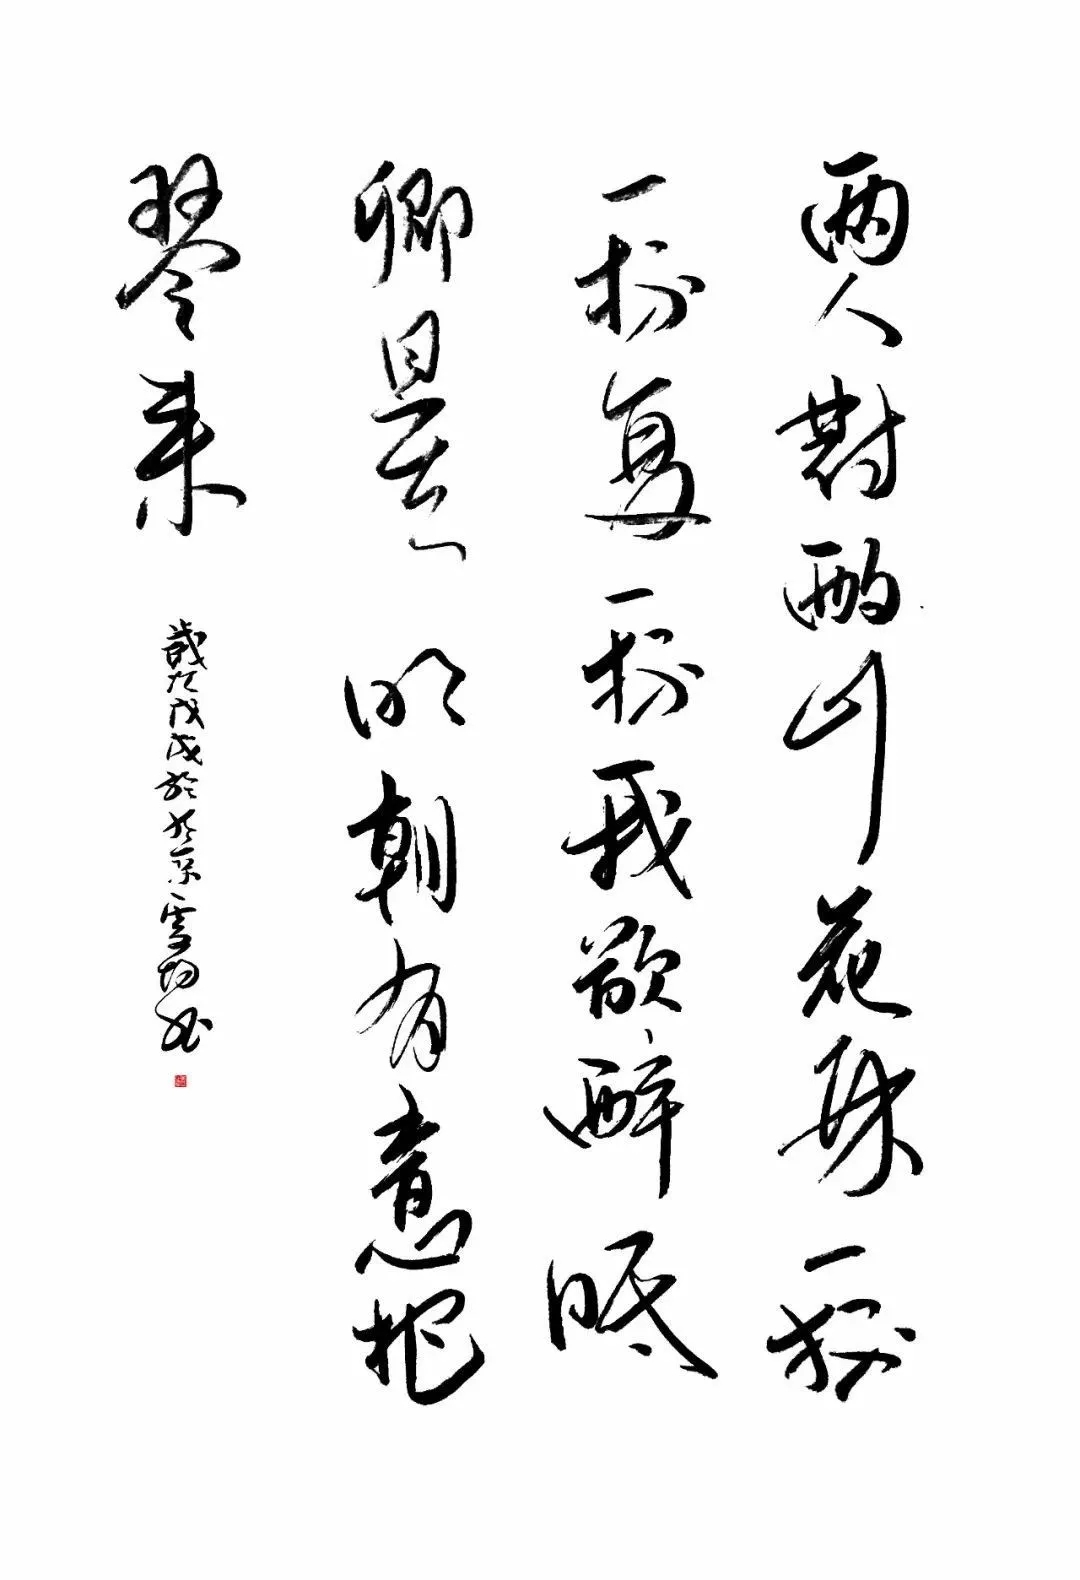 兩人對酌山花開一杯
一杯复一杯我欲醉眠
卿且去明朝有意抱
琴来
歲在戊戌於北京雪